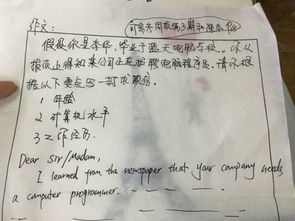 作文:
可参考周报第3期知识本P4
假设你是李华,毕业于蓝天电脑学校。你从
报纸上得知某公司正在招聘电脑程序员,请你根
据以下要点写一封求职信。
1 年龄
2 计算机水平
3 工作经历
Dear Sir/Madam,
I learned from the newspaper that your company needs
a computer programmer.